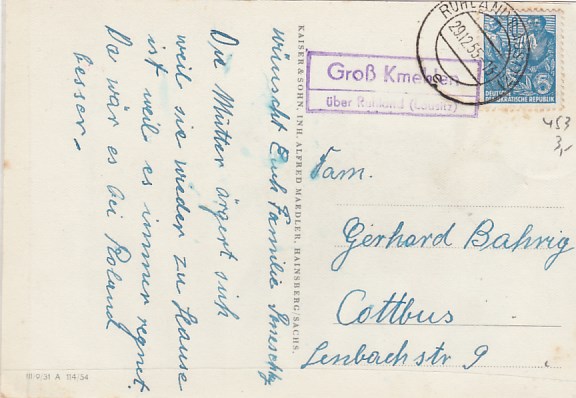 wünscht Euch Familie
Die Mutter ärgert sich
weil sie wieder zu Hause
ist weil es immer regnet.
Da wär es bei Roland
besser.
III/9/31 A 114/54
KAISER & SOHN, INH. ALFRED MAEDLER, HAINSBERG/SACHS.
Groß Kmehlen
über Ruhland (Lausitz)
RUHLAND
29.12.55
DEUTSCHE
DEMOKRATISCHE REPUBLIK
453
3,-
Fam.
Gerhard Bahrig
Cottbus
Lenbachstr 9